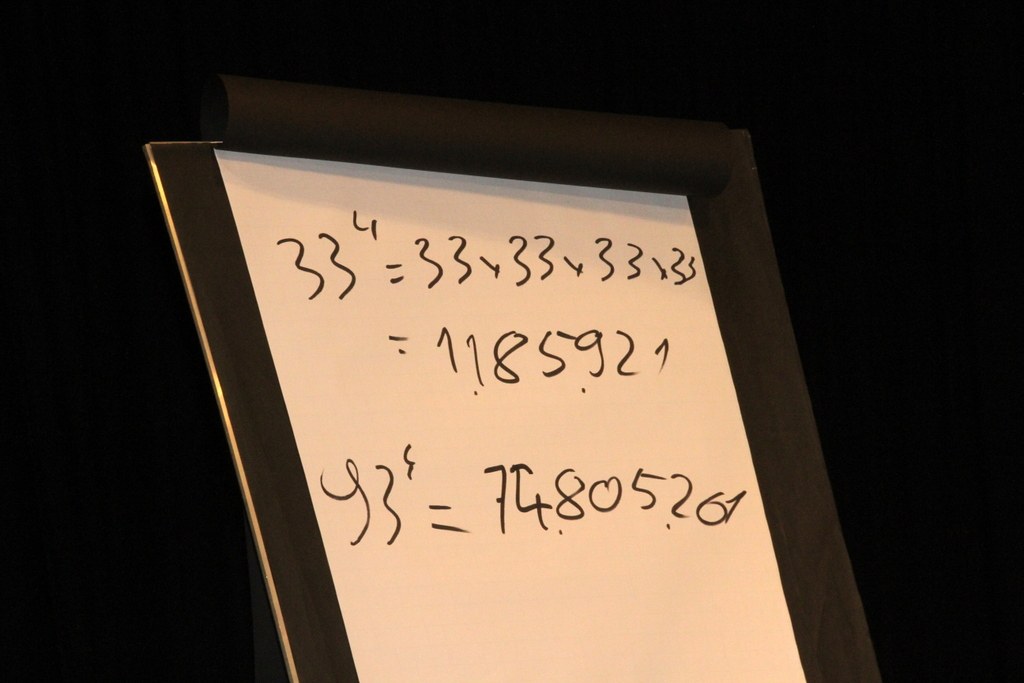 33⁴ = 33 x 33 x 33 x 33
= 1.185.921
93⁴ = 74.805.201